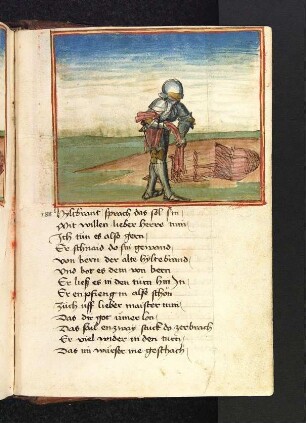 188 Hyltbrant sprach das sol sin
Mit willen lieber herre min
Ich tün es also gern
Er schnaid do sin gewand
von bern der alte hyltebrand
Vnd bot es dem von bern
Er ließ es in den turn hin In
Er enpfieng in also schön
züch uff lieber maister min
Das dir got iimer lon
Das sail enzway stuck do zerbrach
Er viel wider in den turn
Das im wirser nie geschach